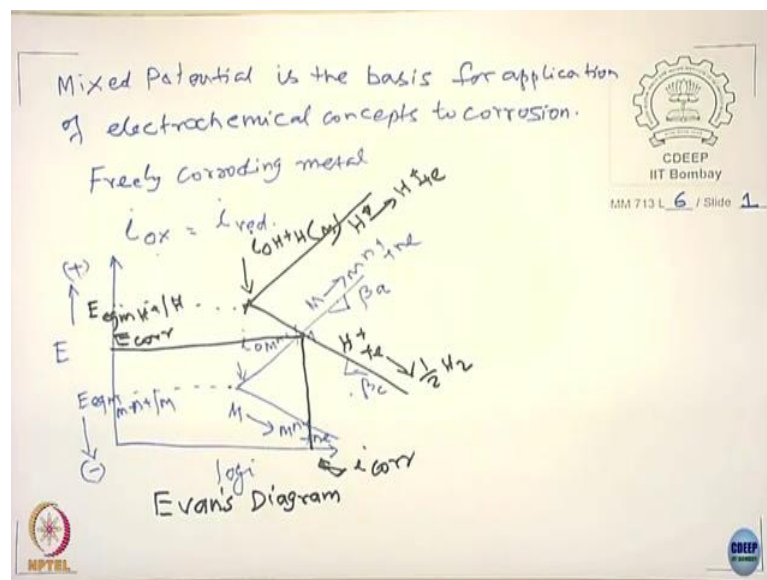 Mixed Potential is the basis for application
of electrochemical concepts to corrosion.
Freely corroding metal
i ox = i red.
CDEEP
IIT Bombay
MM 713 L 6 / Slide 1
i₀ H+/H (M)
H⁺ → H⁺+e
(+)
E eqm H+/H
M → Mⁿ⁺+ne
βa
E corr
E
i₀ Mⁿ⁺/M
H⁺+e → ½ H₂
βc
E eqm Mⁿ⁺/M
M → Mⁿ⁺+ne
(-)
log i
i corr
Evan's Diagram
NPTEL
CDEEP
IIT BOMBAY